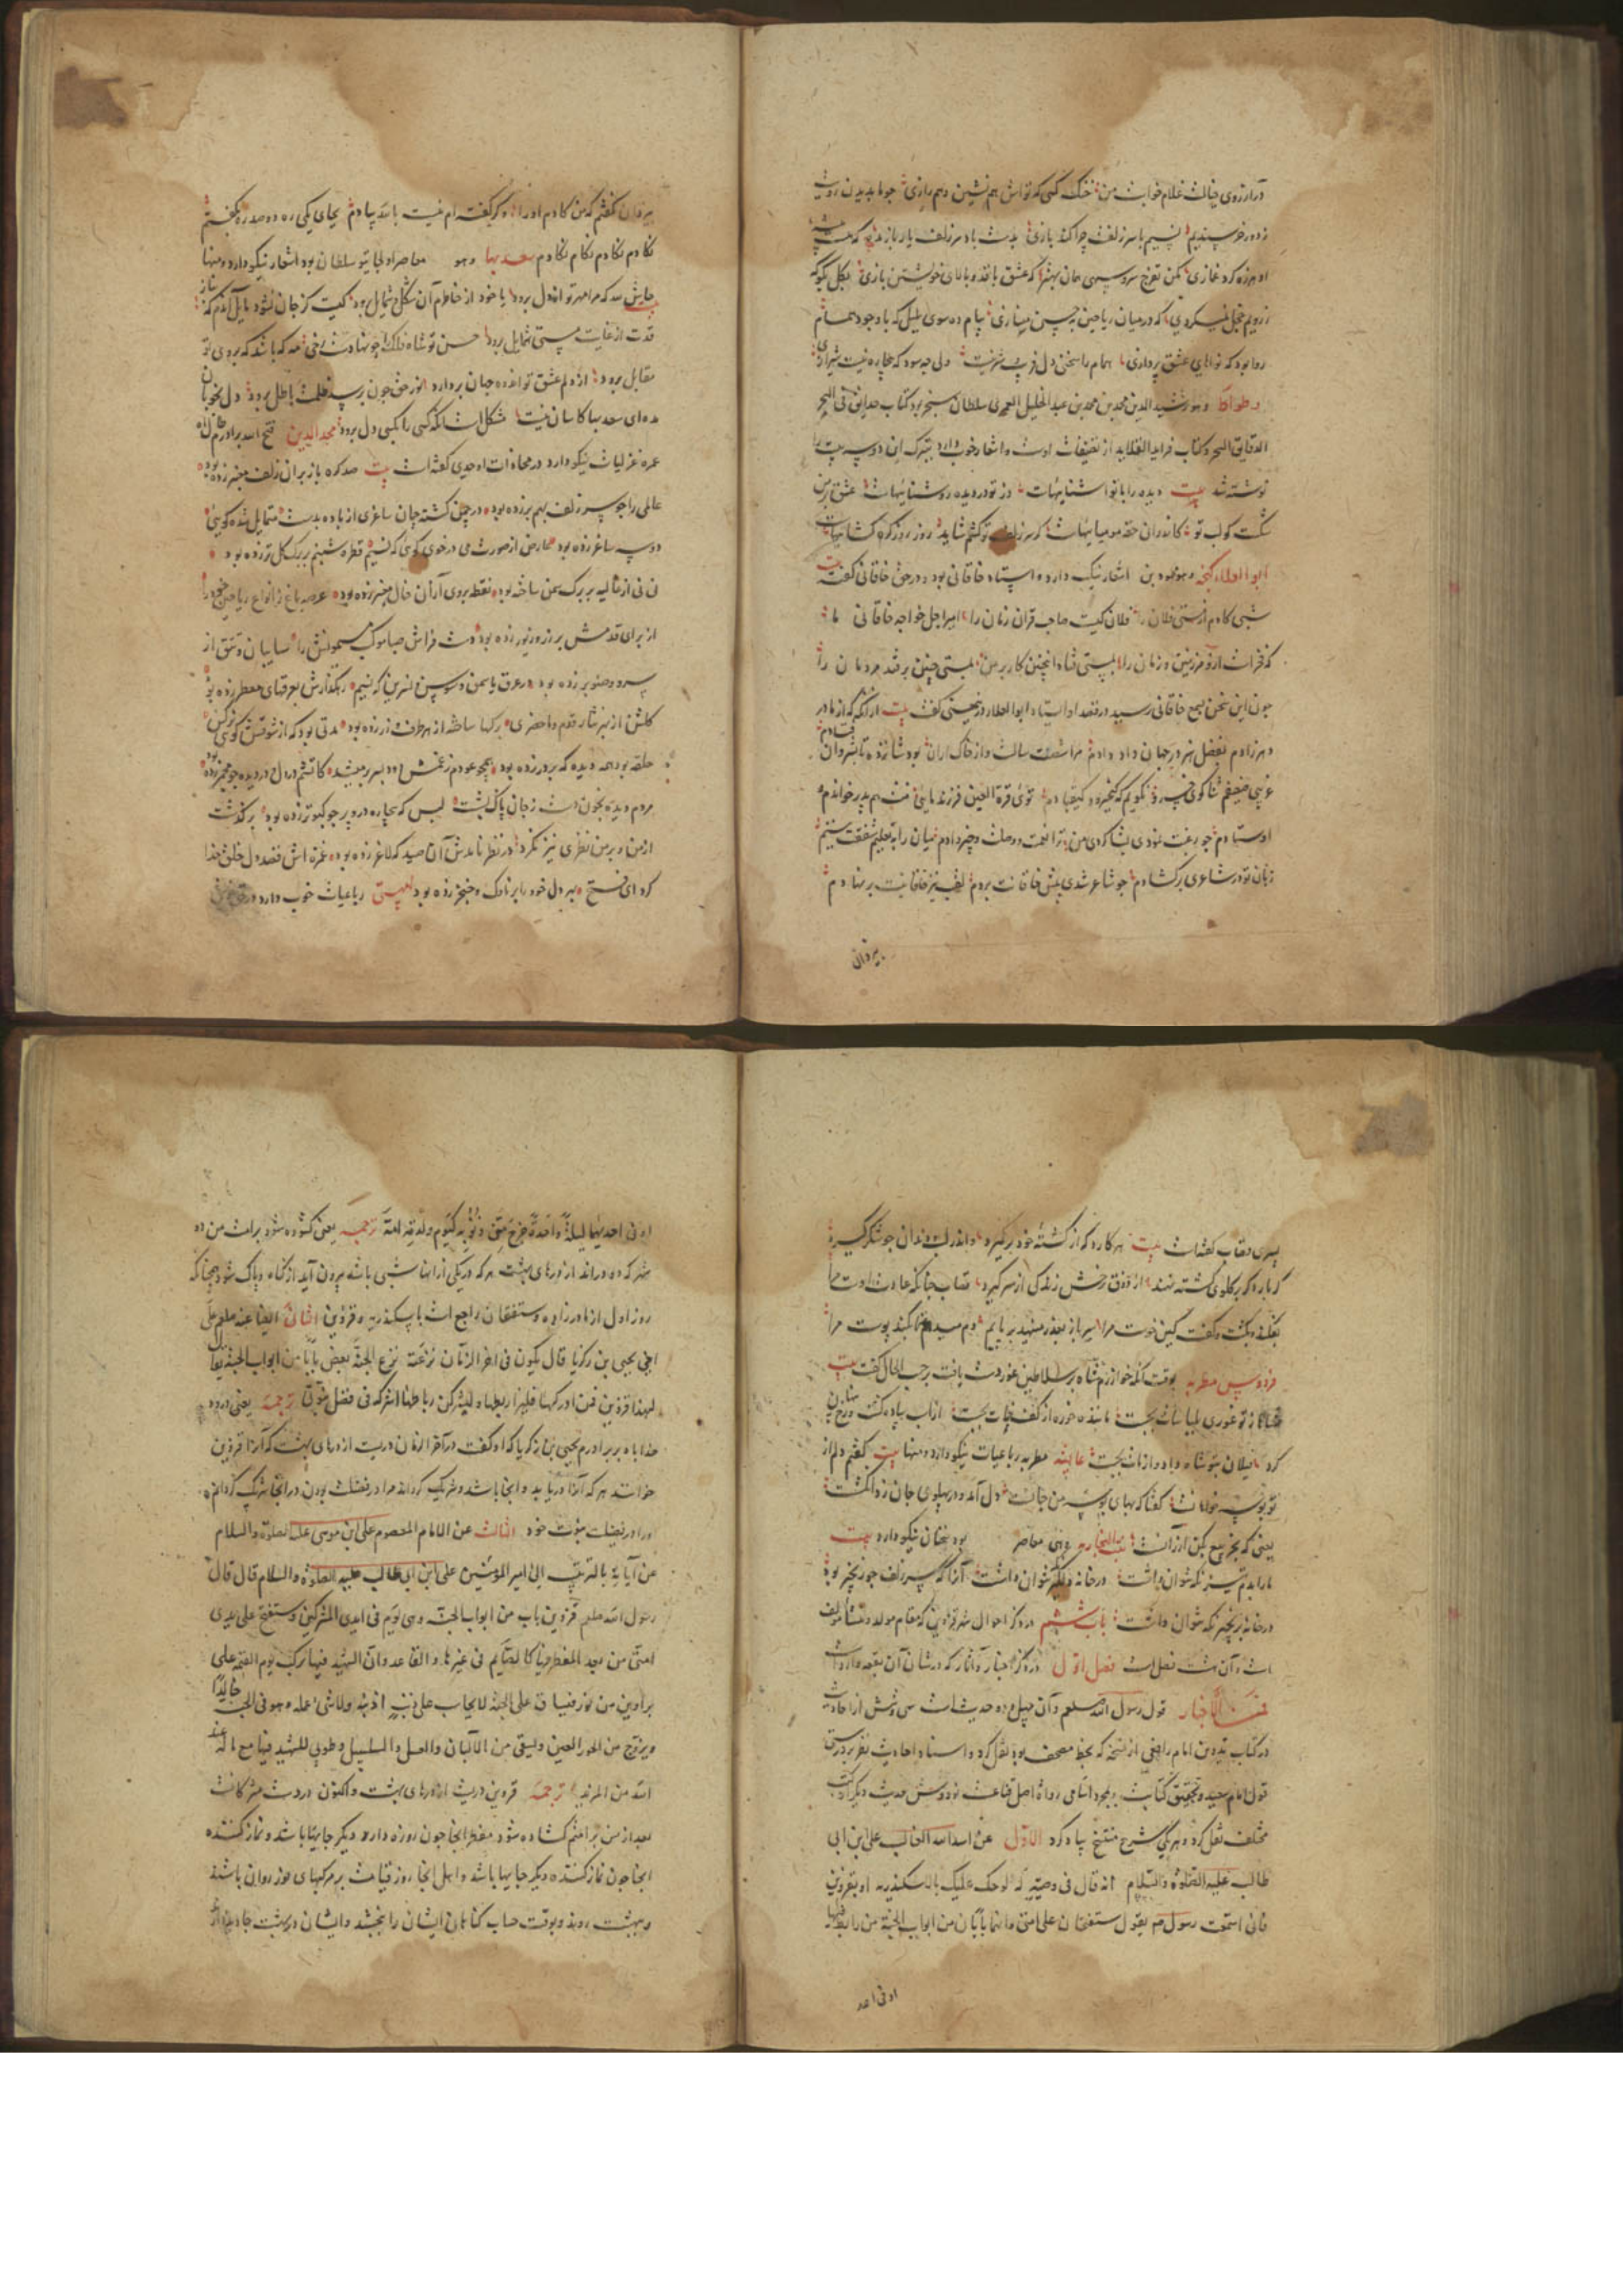 درآرزوی خیالت غلام خوابت من خنک کسی که تواش هم نشین و هم رازی چو ما بدیدن رویت
ز دور خرسندیم نسیم با سر زلفت چرا کند بازی بدست باد سر زلف یار باز مده که هست
او هرزه گرد غمازی مکن تفرج سرو سهی همان بهتر که عشق بافد و بالای خویشتن بازی بگل بگوکه
ز رویم خجل نمیکردی که در میان ریاحین بحسن مینازی پیام ده سوی بلبل که با وجود همام
روا بود که نواهای عشق پردازی همام را سخن دل فریب شیرینست ولی چه سود که بیچاره نیست شیرازی
وطواط و هو رشیدالدین محمد بن محمد بن عبد الجلیل العمری سلطان سنجر بود کتاب حدایق السحر
الدقایق الشعر و کتاب فراید القلاید از تصنیفات اوست و اشعار خوب دارد بتبرک این دو سه بیت را
نوشته شد بیت دیده را با تو آشناییهاست وز تو در دیده روشناییهاست عشق بر من
شکست کو لب تو کاندران حقه مومیاییهاست گر سر زلف تو کشم شاید روز روز گره گشاییهاست
ابو العلاء گنجه و هو محمود بن اشعار نیک دارد و استاد خاقانی بود و در حق خاقانی گفت بیت
شبی کادم از مستی فلان را فلان کیست صاحب قران زمان را امیر اجل خواجه خاقانی ما
که فخرست ازو مر زمین و زمان را بمستی فتاد اینچنین کار بر من بمستی چنین برفتد مردمان را
چون این سخن بسمع خاقانی رسید در قصد او استاد ابو العلاء در نصیحتش گفت بیت از آنگه که از مادر
دهر زادم بفضل و هنر در جهان داد دادم مرا شصت سالست و از خاک اران بود شانزده تا بشروان فتادم
غریبی ضعیفم ثناگوی خسرو نگویم که کیخسرو و کیقبادم توئی قرة العین فرزند مائی منت هم پدر خوانده
اوستادم چو رغبت نمودی بشاگردی من ترا نعمت و دولت و چیز دادم میان را بتعلیم شفقت ببستم
زبان تو در شاعری برگشادم چو شاعر شدی پیش خاقانت بردم لقب نیز خاقانیت برنهادم
بیزدان
بیزدان نگفتم که من گادم او را وگر گفته ام نیست بالله بیادم بجای یکی ره دو صد ره بگفتم
نگادم نگادم نگام نگادم سعد بها و هو معاصر اولجایتو سلطان بود اشعار نیکو دارد و منها
بیت که مرا مهر تو از دل برود یا خود از خاطرم آن شکل و شمایل برود کیست کز جان نشود مایل آندم که ز ناز
قدت از غایت مستی متمایل برود حسن تو شاه فلک را چو نهادست رخی مه که باشد که بروی تو
مقابل برود از دلم عشق تو اندوه جهان بردارد نور حق چون برسد ظلمت باطل برود دل بخوبان
مده ای سعد بها کاسان نیست مشکل است آنکه کسی را بکسی دل برود مجد الدین فتح الله برادرم
عمره غزلیات نیکو دارد در محاذات اوحدی گفته است بیت صد گره باز بر آن زلف معنبر زده بود
عالمی را چو سر زلف بهم بر زده بود در چمن گشته چمان ساغری از باده بدست متمایل شده گویی
دو سه ساغر زده بود عارض از صورت می در خوی گوئی که نسیم قطره شبنم بر برگ گل تر زده بود
از غالیه بر برگ سمن ساخته بود نقطه بر وی آن خال معنبر زده بود عرصه باغ ز انواع ریاحین
از برای قدمش بر زر و زیور زده بود دست فراش صبا موکب میمونش را سایبان و تتق از
سرو و صنوبر زده بود در عرق یاسمن و سوسن و نسرین که نسیم رهگذارش بعرقهای معطر زده بود
گلشن از بهر نثار قدم ماحضری برگها ساخته از هر طرف زر زده بود مدتی بود که از شوقش گوئی نرگس
حلقه بود همه دیده که بر در زده بود همچو عودم ز غمش دود بسر بر میشد کاتشم در دل و در دیده چو مجمر زده بود
مردم دیده بخون دست ز جان پاک بشست بس که بیچاره درو پر چو کبوتر زده بود برگذشت
از من و بر من نظری نیز نکرد در نظر نامدش آن صید که لاغر زده بود غمزه اش قصد دل خلق خدا
کرد ای فتح بهر دل خود را بر ناوک و خنجر زده بود رباعیات خوب دارد
پسری قصاب گفته است بیت هر کارد که از کشته خود برگیرد و اندر لب و دندان چو شکر گیرد
گر بار دگر بر گلوی کشته نهد از ذوق رخش زندگی از سر گیرد قصاب چنانکه عادت اوست مرا
بفکند و بکشت و گفت کین خوست مرا سر باز بعذر مینهد بر پایم دم میدهدم تا بکند پوست مرا
فردوس مطربه بوقت آنکه خوارزمشاه بر سلاطین غور دست یافت بر حسب الحال گفت بیت
شاها ز تو غوری بلباسات بجست ماننده جوزه از کف خات بجست از اسب پیاده گشت و رخ پنهان
کرد فیلان بتو شاه داد و از مات بجست عایشه مطربه رباعیات نیکو دارد و منها بیت گفتم دلم از
تو بوسه خواهانست گفتا که بهای بوسه من جانست دل آمد و در پهلوی جان زد انگشت
یعنی که بخر بیع بکن ارزانست بنت البخاریه و هی معاصر بود سخنان نیکو دارد بیت
ما را بدم تیز نگه نتوان داشت در خانه دلگیر نتوان داشت آنرا که سر زلف چو زنجیر بود
در خانه بزنجیر نگه نتوان داشت باب ششم در ذکر احوال شهر قزوین که مقام مولد و منشاء مولف
است و آن هشت فصل است فصل اول در ذکر اخبار و آثار که در شان آن بقعه وارد است
الاخبار قول رسول الله صلعم و آن چهل و حدیث است سی و شش از احادیث
در کتاب تدوین امام رافعی از نسخه که بخط مصنف بود نقل کرد و اسناد احادیث بغر
قول امام سعید و تحقیق کتابت بمجرد اسامی رواة اصل قناعت نمود و شش حدیث دیگر از کتب
مختلف نقل کرد و هر یکی بشرح منتخ یاد کرد الاول عن اسد الله الغالب علی بن ابی
طالب علیه الصلوة والسلام انه قال فی وصیته له لو حک علیک بالاسکندریه او بقزوین
فانی سمعت رسول صم یقول ستفتحان علی امتی و انهما بابان من ابواب الجنة من رابط فیهما
او فی احد
او فی احدیهما لیلة واحدة خرج من ذنوبه کیوم ولدته امه ترجمه یعنی گشوده شود بر امت من دو
شهر که دو درند از درهای بهشت هر که در یکی از اینها شبی باشد بیرون آید از گناه و پاک شود چنانکه
روز اول از مادر زاده و ستفتحان راجع است باسکندریه و قزوین الثانی ایضا عنه صلعم علی
اخی یحیی بن زکریا قال یکون فی اخر الزمان ترعة ترع الجنة بعض بابا من ابواب الجنة یقال
لها قزوین فمن ادرکها فلیرابطها و لیشرکنی رباطها اشرکه فی فضل نبوتی ترجمه یعنی درود
خدا باد بر برادرم یحیی بن زکریا که او گفت در آخر الزمان دریست از درهای بهشت که آنرا قزوین
خوانند هر که آنرا دریابد و آنجا باشد و شریک گرداند مرا در فضیلت بودن در آنجا شریک گردانم
او را در فضیلت نبوت خود الثالث عن الامام المعصوم علی ابن موسی علیه الصلوة والسلام
عن آبایه بالترتیب الی امیر المؤمنین علی ابن ابی طالب علیه الصلوة والسلام قال قال
رسول الله صلعم قزوین باب من ابواب الجنة و هی الیوم فی ایدی المشرکین و ستفتح علی یدی
امتی من بعد المفطر فیها کالصایم فی غیرها و القاعد وان الشهید فیها یرکب یوم القیمة علی
براذین من نور فیساق علی الجنة لا یحاسب علی ذنب اذنبه ولا شیء عمله و هو فی الجنة خالدا
و یزوج من الحور العین و یسقی من الالبان والعسل والسلسبیل و طوبی للشهید فیها مع ما له عند
الله من المزید ترجمه قزوین دریست از درهای بهشت و اکنون در دست مشرکانست
بعد از من بر امتم گشاده شود مفطر آنجا چون روزه دار دیگر جایها باشد و نماز نکننده
آنجا چون نماز کننده دیگر جایها باشد و اهل آنجا روز قیامت بر مرکبهای نور روان باشند
و ببهشت روند و بوقت حساب گناهان ایشان را ببخشد و ایشان در بهشت جاوید